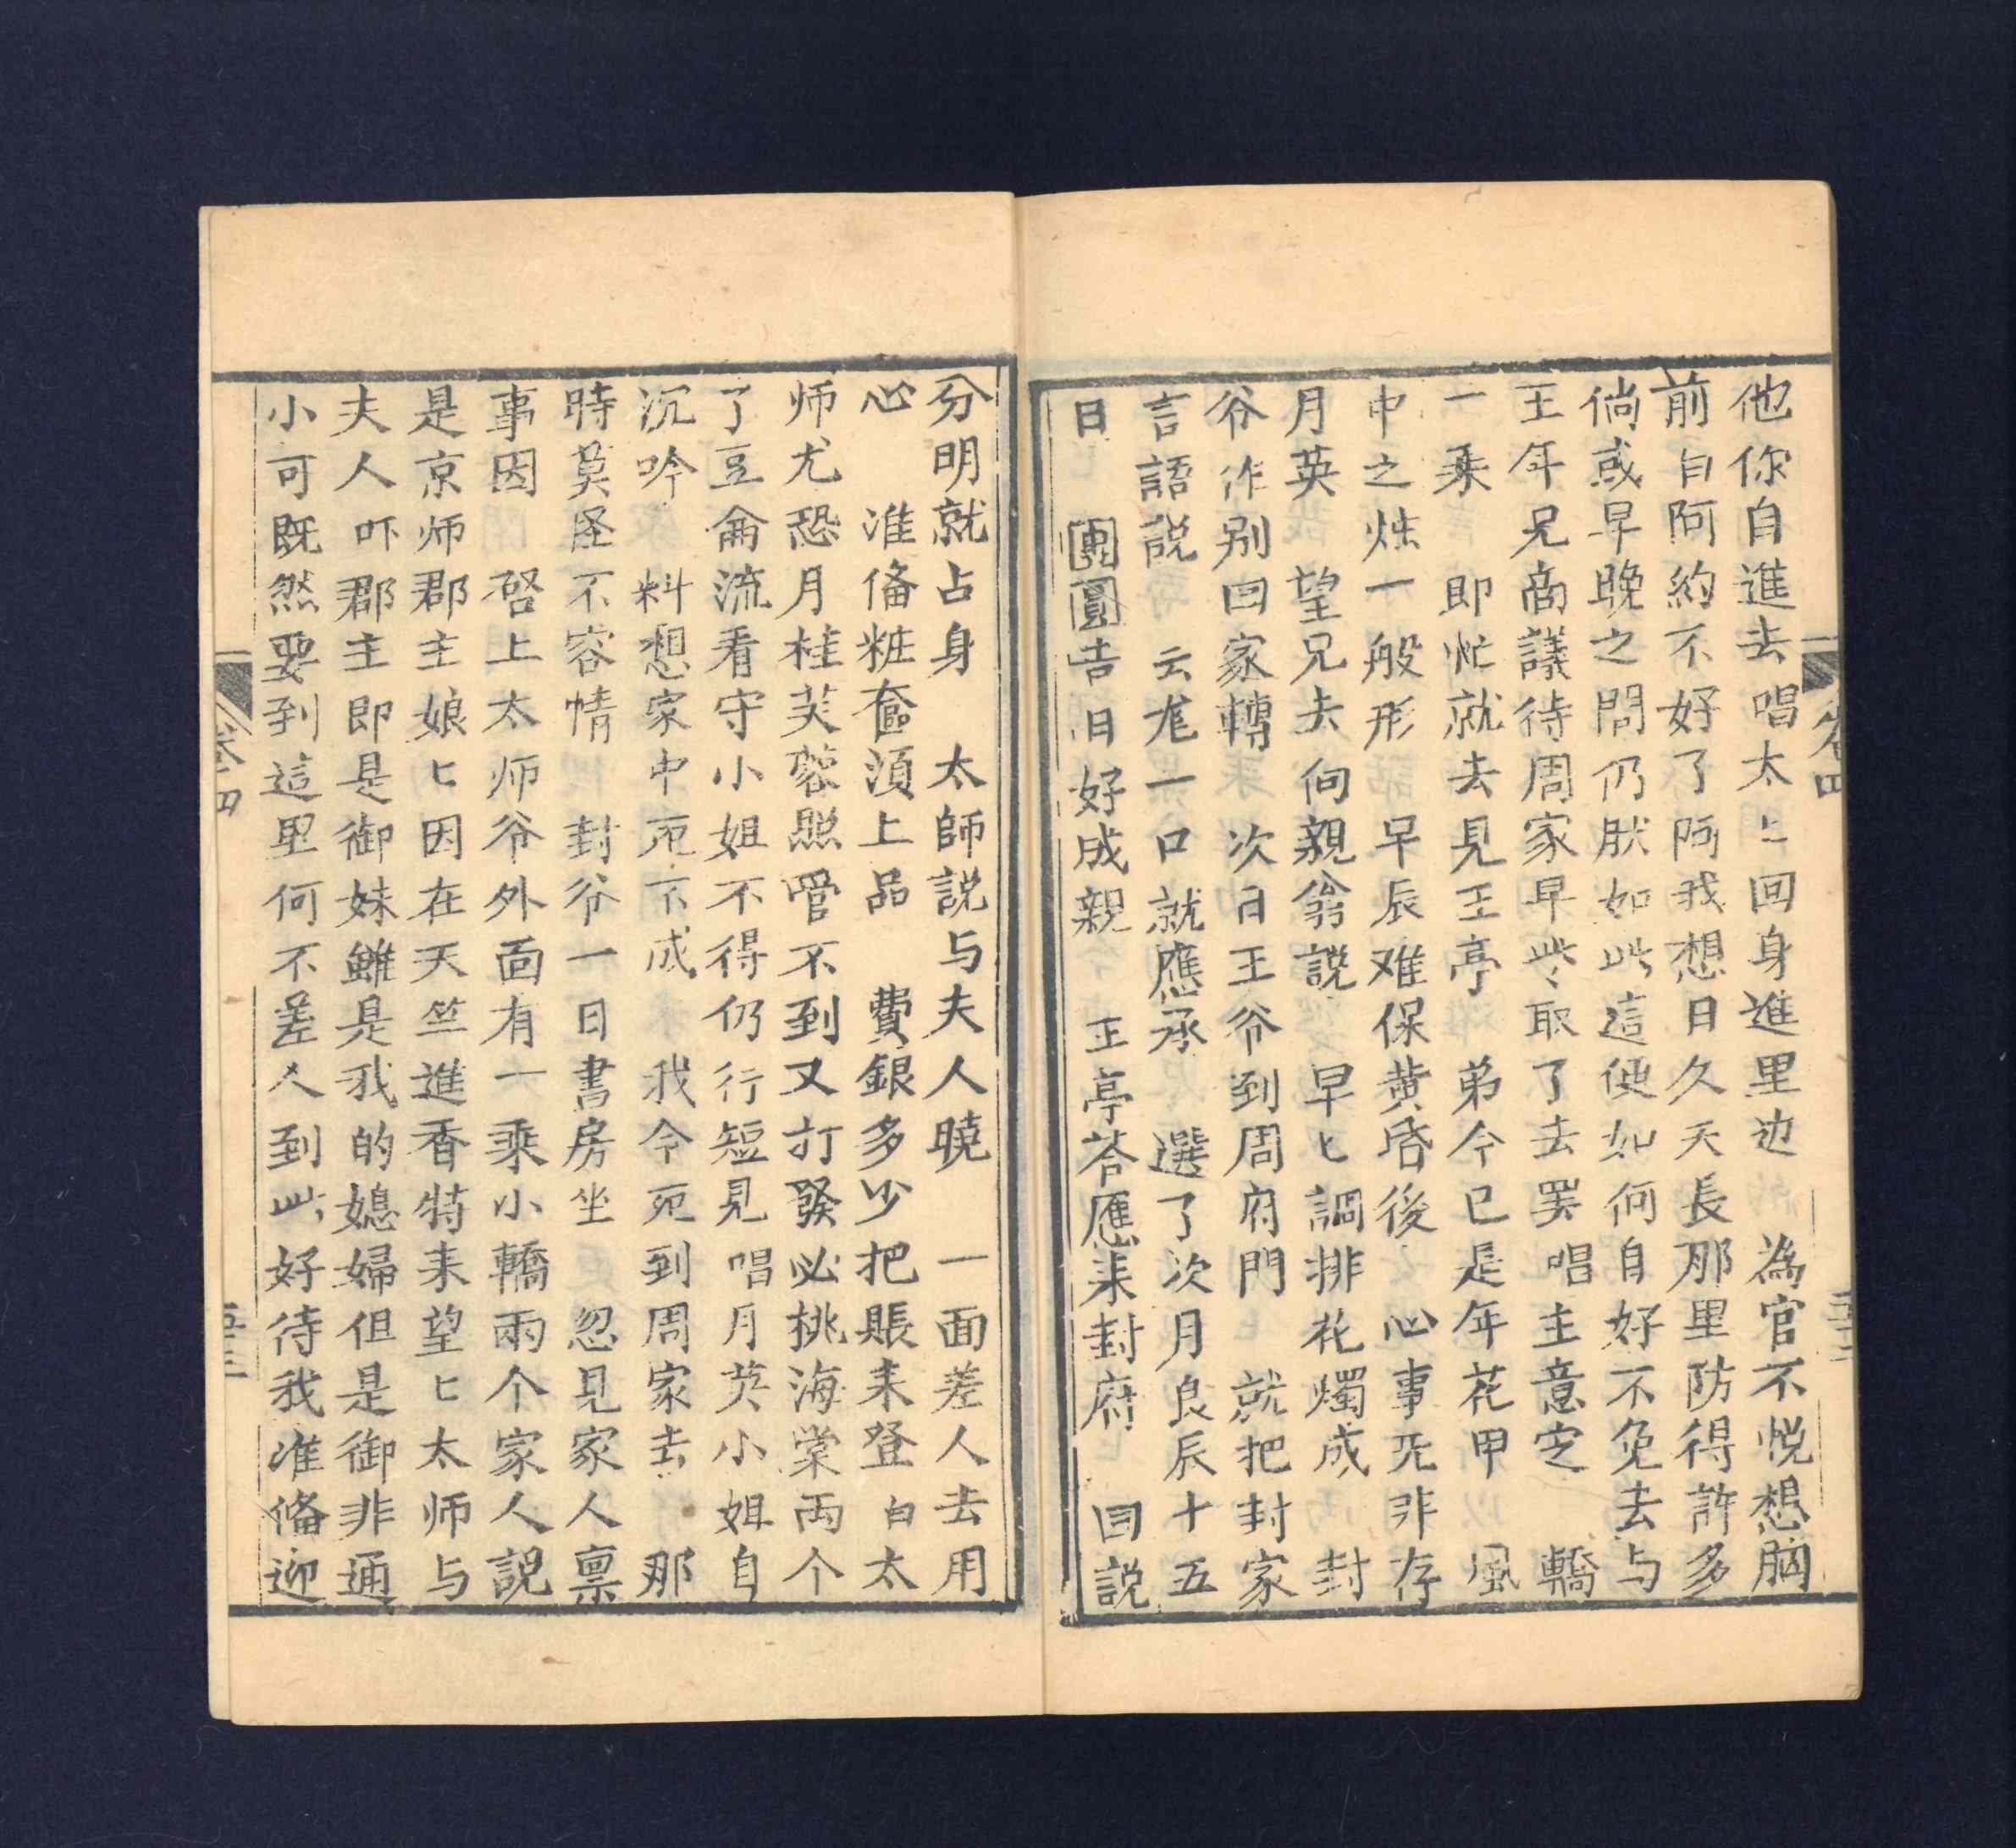 他你自進去唱太〻回身進里边　為官不悅想胸
前白阿約不好了阿我想日久天長那里防得許多
倘或早晚之間仍肰如此這便如何自好不免去与
王年兄商議待周家早些取了去罢唱主意定　轎
一乘　即忙就去見王亭　弟今已是年花甲　風
中之烛一般形　早辰难保黄昏後　心事旡非存
月英　望兄去何親翁説　早〻調排花燭成　封
爷作别回家轉　次日王爷到周府門　就把封家
言語説　云尨一口就應承　選了次月良辰十五
日　團圓吉日好成親　王亭荅應来封府　回説
分明就占身　太師説与夫人曉　一面差人去用
心　准俻粧奩湏上品　費銀多少把賬来登白太
师尤恐月桂芙蓉照管不到又打發必桃海棠両个
了豆侖流看守小姐不得仍行短見唱月英小姐自
沉吟　料想家中死不成　我今死到周家去　那
時莫怪不容情　封爷一日書房坐　忽見家人禀
事因　啓上太师爷外面有一乘小轎兩个家人説
是京师郡主娘〻因在天竺進香特来望〻太师与
夫人吓郡主即是御妹雖是我的媳婦但是御非通
小可既然要到這里何不差人到此好待我准俻迎
卷四
卷四